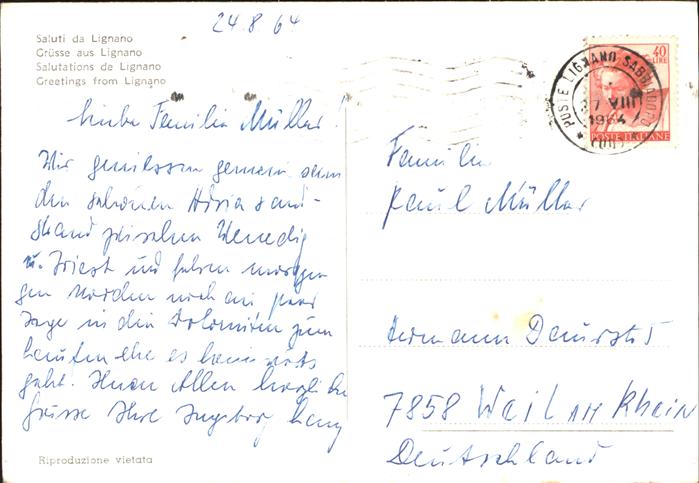 24.8.64
Saluti da Lignano
Grüsse aus Lignano
Salutations de Lignano
Greetings from Lignano
Liebe Familie Müller!
Wir geniessen gemein sam
den schönen Adria sand-
strand zwischen Venedig
u. Triest und fahren morgen
gen Norden noch ein paar
Tage in die Dolomiten zum
laufen ehe es heimwärts
geht. Ihnen Allen herzliche
Grüsse Ihre Ingeborg
Riproduzione vietata
40
LIRE
POSTE ITALIANE
POSTE LIGNANO SABBIADORO
27 VIII
1964
Familie
Paul Müller
Hermann
7858 Weil am Rhein
Deutschland